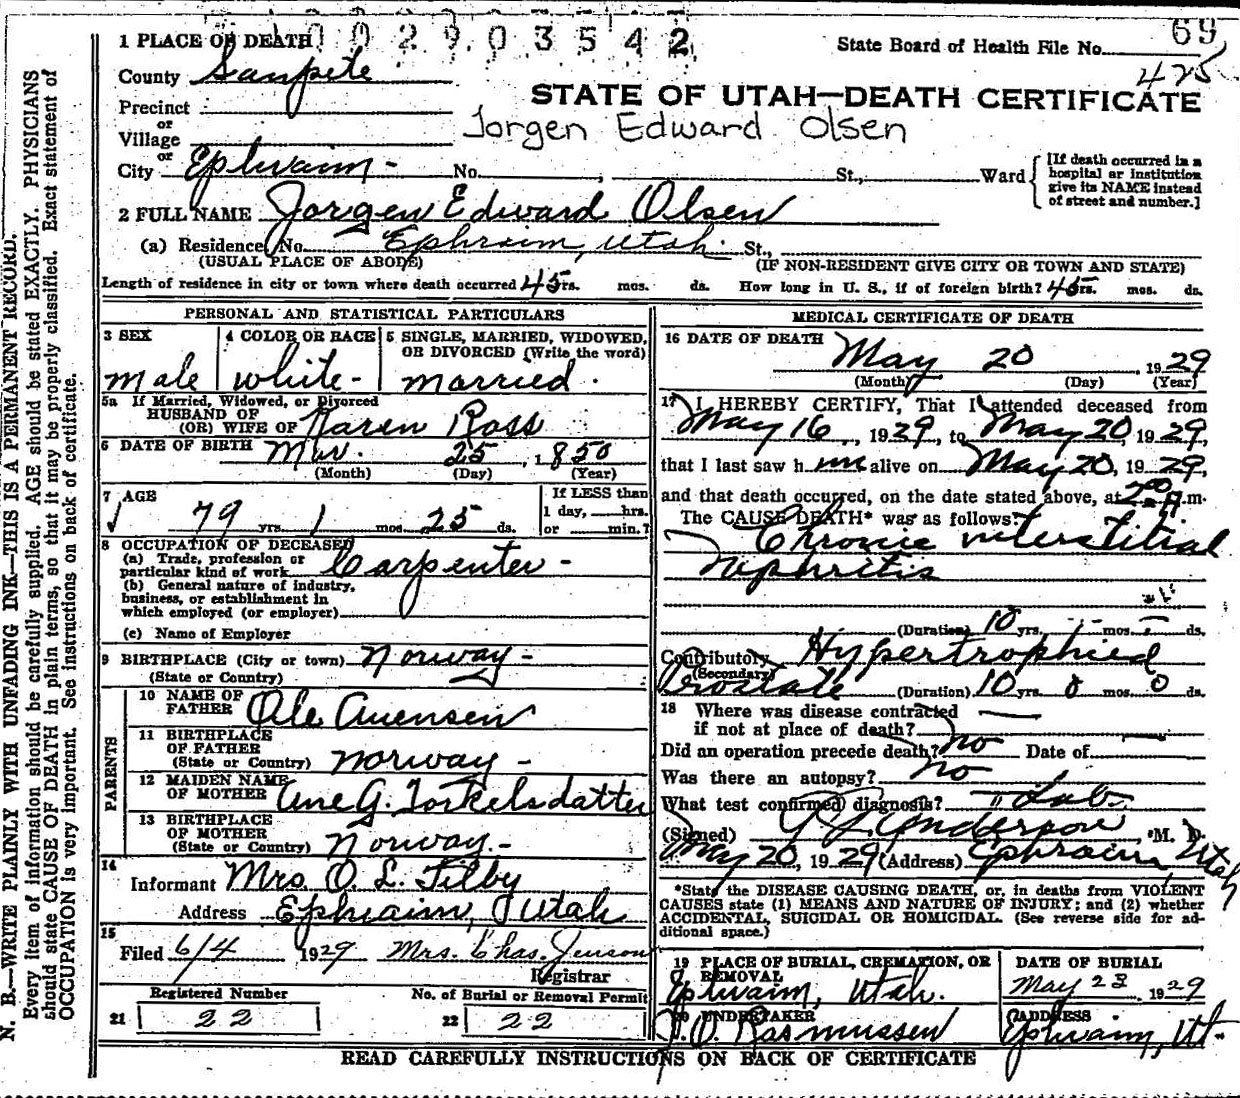 1 PLACE OF DEATH 0029 03542
State Board of Health File No. 69
425
County Sanpete
STATE OF UTAH—DEATH CERTIFICATE
Precinct
or
Village
or
Jorgen Edward Olsen
City Ephraim - No. , St., Ward
[If death occurred in a hospital or institution give its NAME instead of street and number.]
2 FULL NAME Jorgen Edward Olsen
(a) Residence, No. Ephraim, Utah. St.,
(USUAL PLACE OF ABODE) (IF NON-RESIDENT GIVE CITY OR TOWN AND STATE)
Length of residence in city or town where death occurred 45 rs. mos. ds. How long in U. S., if of foreign birth? 45 rs. mos. ds.
PERSONAL AND STATISTICAL PARTICULARS
3 SEX 4 COLOR OR RACE 5 SINGLE, MARRIED, WIDOWED,
OR DIVORCED (Write the word)
male white - married.
5a If Married, Widowed, or Divorced
HUSBAND OF
(OR) WIFE OF Karen Ross
6 DATE OF BIRTH Mar. 25, 1850
(Month) (Day) (Year)
7 AGE If LESS than
1 day, hrs.
79 yrs. 1 mos. 25 ds. or min.?
8 OCCUPATION OF DECEASED
(a) Trade, profession or
particular kind of work Carpenter -
(b) General nature of industry,
business, or establishment in
which employed (or employer)
(c) Name of Employer
9 BIRTHPLACE (City or town) Norway -
(State or Country)
PARENTS
10 NAME OF
FATHER Ole Auensen
11 BIRTHPLACE
OF FATHER
(State or Country) Norway -
12 MAIDEN NAME
OF MOTHER Ane G. Torkelsdatter
13 BIRTHPLACE
OF MOTHER
(State or Country) Norway. -
14
Informant Mrs. O. L. Tilby
Address Ephraim, Utah
15
Filed 6/4 1929 Mrs. Chas. Jenson
Registrar
Registered Number No. of Burial or Removal Permit
21 22 22 22
MEDICAL CERTIFICATE OF DEATH
16 DATE OF DEATH May 20, 1929
(Month) (Day) (Year)
17 I HEREBY CERTIFY, That I attended deceased from
May 16, 1929, to May 20, 1929,
that I last saw him alive on May 20, 1929,
and that death occurred, on the date stated above, at 2:00 A.m.
The CAUSE DEATH* was as follows:
Chronic interstitial
Nephritis
(Duration) 10 yrs. - mos. - ds.
Contributory Hypertrophied
(Secondary)
Prostate (Duration) 10 yrs. 0 mos. 0 ds.
18 Where was disease contracted
if not at place of death?
Did an operation precede death? no Date of
Was there an autopsy? no
What test confirmed diagnosis? Lab.
(Signed) Anderson M. D.
May 20, 1929 (Address) Ephraim, Utah
*State the DISEASE CAUSING DEATH, or, in deaths from VIOLENT
CAUSES state (1) MEANS AND NATURE OF INJURY; and (2) whether
ACCIDENTAL, SUICIDAL OR HOMICIDAL. (See reverse side for ad-
ditional space.)
19 PLACE OF BURIAL, CREMATION, OR
REMOVAL
Ephraim, Utah.
DATE OF BURIAL
May 23, 1929
20 UNDERTAKER
J. O. Rasmussen
ADDRESS
Ephraim, Ut.
READ CAREFULLY INSTRUCTIONS ON BACK OF CERTIFICATE
N. B.—WRITE PLAINLY WITH UNFADING INK—THIS IS A PERMANENT RECORD.
Every item of information should be carefully supplied. AGE should be stated EXACTLY. PHYSICIANS
should state CAUSE OF DEATH in plain terms, so that it may be properly classified. Exact statement of
OCCUPATION is very important. See instructions on back of certificate.